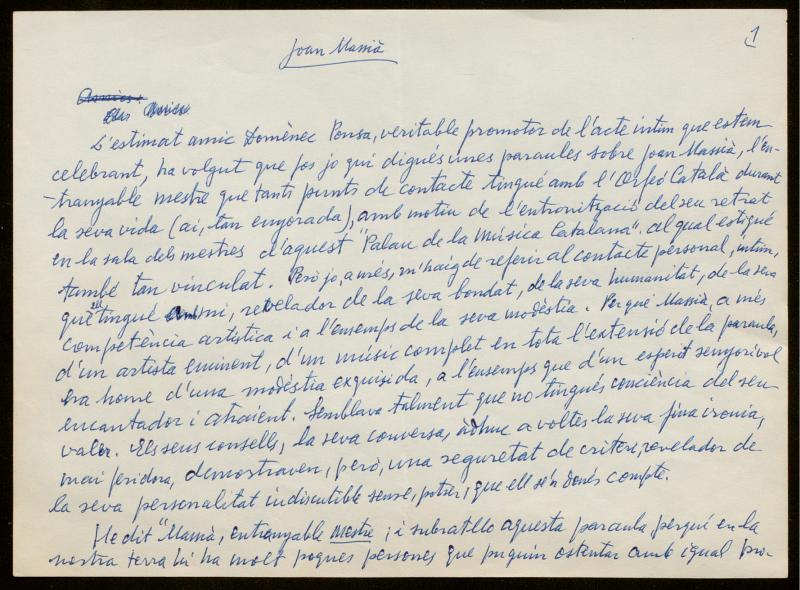 1
Joan Massià
Amics:
L'estimat amic Domènec Ponsa, veritable promotor de l'acte íntim que estem
celebrant, ha volgut que fos jo qui digués unes paraules sobre Joan Massià, l'en-
tranyable mestre que tants punts de contacte tingué amb l'Orfeó Català durant
la seva vida (ai, tan enyorada), amb motiu de l'entronització del seu retrat
en la sala dels mestres d'aquest "Palau de la Música Catalana", al qual estigué
també tan vinculat. Però jo, a més, m'haig de referir al contacte personal, íntim,
que ell tingué amb mi, revelador de la seva bondat, de la seva humanitat, de la seva
competència artística i a l'ensemps de la seva modèstia. Perquè Massià, a més
d'un artista eminent, d'un músic complet en tota l'extensió de la paraula,
era home d'una modèstia exquisida, a l'ensemps que d'un esperit senyorívol
encantador i atraient. Semblava talment que no tingués conciència del seu
valor. Els seus consells, la seva conversa, àdhuc a voltes la seva fina ironia,
mai feridora, demostraven, però, una seguretat de criteri, revelador de
la seva personalitat indiscutible sense, potser, que ell se'n donés compte.
He dit "Massià, entranyable mestre; i subratllo aquesta paraula perquè en la
nostra terra hi ha molt poques persones que puguin ostentar amb igual pro-